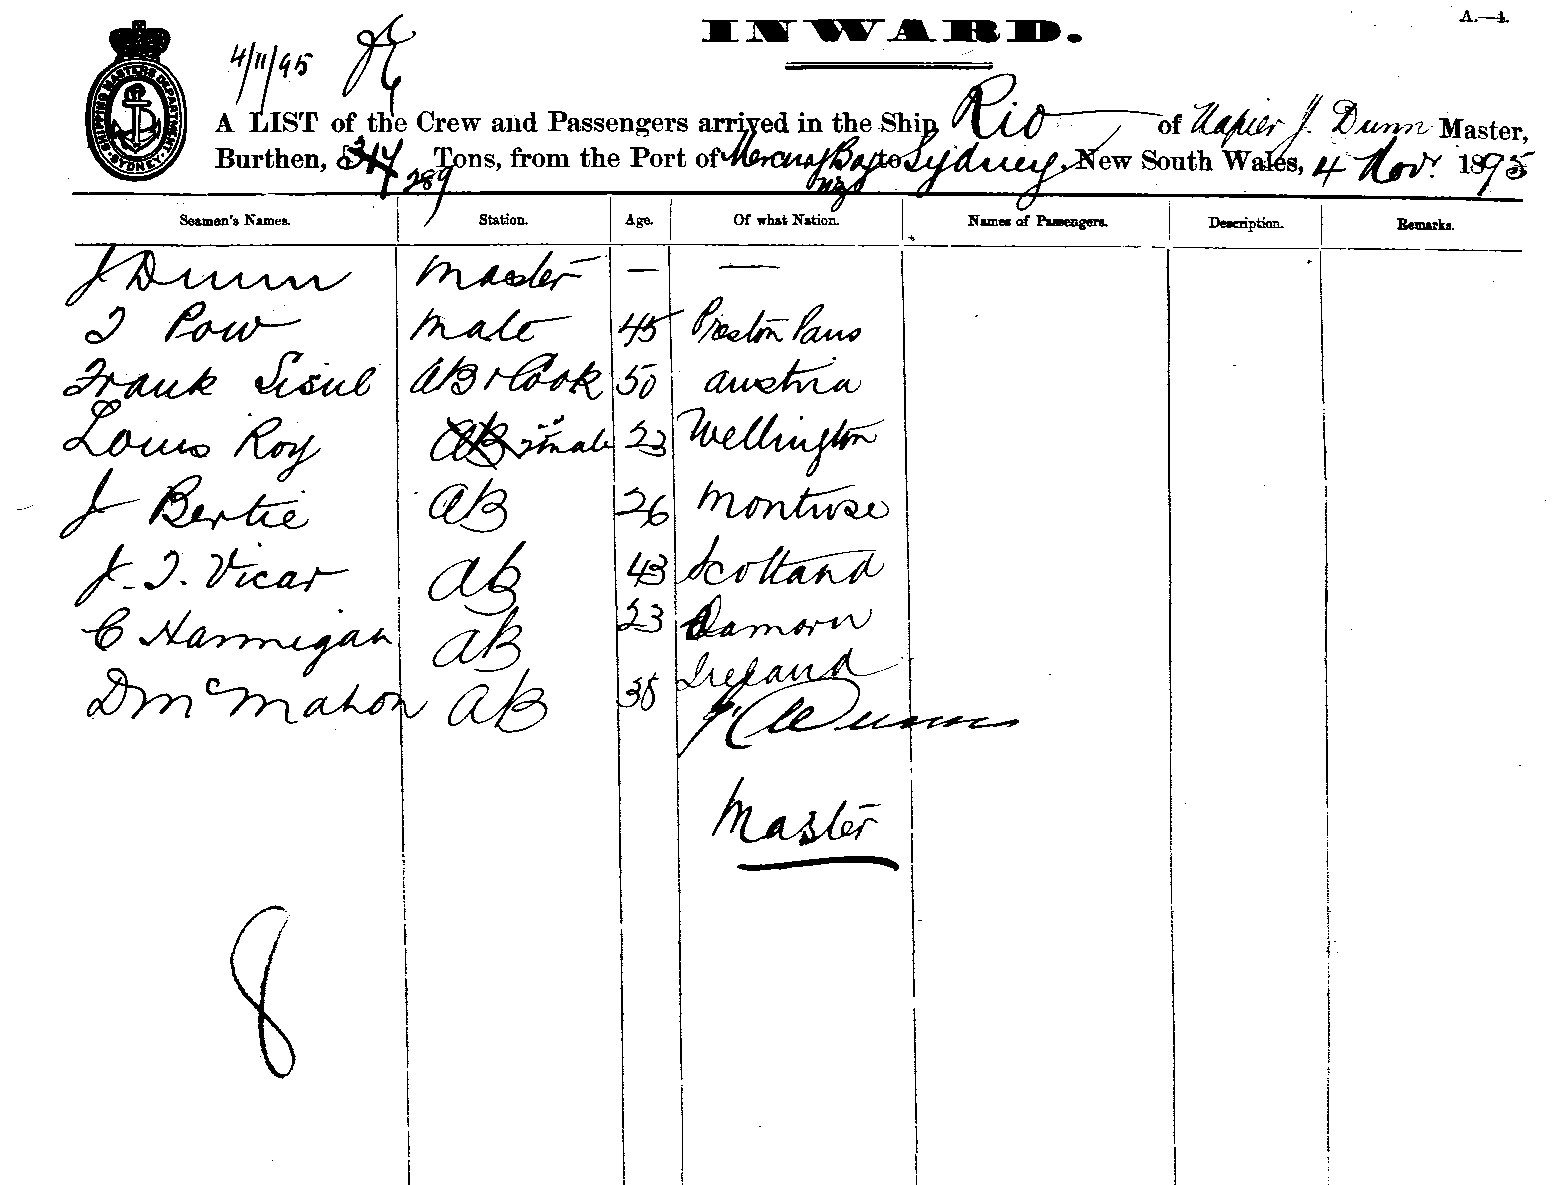 A.—4.
INWARD.
SHIPPING MASTERS DEPARTMENT. SYDNEY.
4/11/95
A LIST of the Crew and Passengers arrived in the Ship Rio of Napier J. Dunn Master,
Burthen, 289 Tons, from the Port of Mercury Bay NZ to Sydney, New South Wales, 4 Nov. 1895
Seamen's Names. Station. Age. Of what Nation. Names of Passengers. Description. Remarks.
J Dunn Master — —
T Pow Mate 45 Preston Pans
Frank Sisul AB & Cook 50 Austria
Louis Roy AB 2nd Mate 23 Wellington
J Bertie AB 26 Montrose
J. T. Vicar AB 43 Scotland
C Hannigan AB 23
D McMahon AB 38 Ireland
Dunn
Master
8